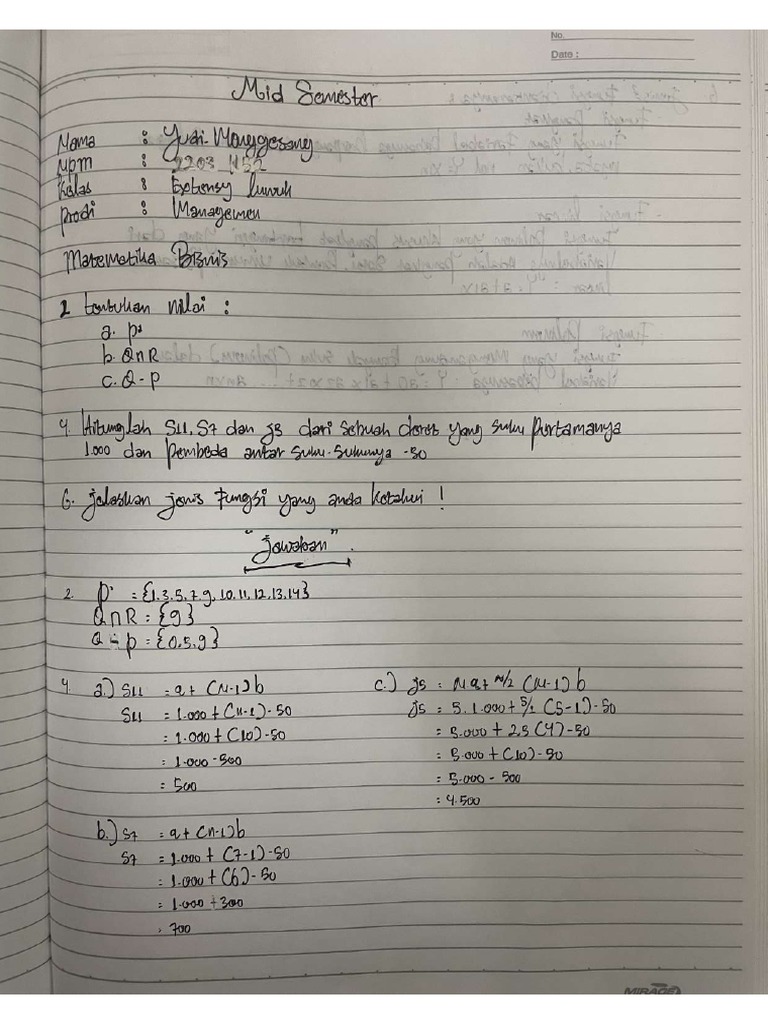 No.
Date :
Mid Semester
Nama : Yudi Monggesang
Npm : 2203
Kelas : Extensy Luwuk
Prodi : Managemen
Matematika Bisnis
2 tentukan nilai :
a. P'
b. Q∩R
c. Q-P
4. Hitunglah S11, S7 dan J5 dari sebuah deret yang suku pertamanya
1.000 dan pembeda antar suku-sukunya -50
6. jelaskan jenis fungsi yang anda ketahui !
"Jawaban"
2. P' = {1.3.5.7.9.10.11.12.13.14}
Q∩R = {9}
Q-P = {0.5.9}
4. a.) S11 = a+ (N-1) b
S11 = 1.000 + (11-1)-50
= 1.000 + (10)-50
= 1.000-500
= 500
b.) S7 = a+ (n-1)b
S7 = 1.000 + (7-1)-50
= 1.000 + (6)-50
= 1.000 +300
= 700
c.) J5 = Na + N/2 (N-1) b
J5 = 5.1.000 + 5/2 (5-1)-50
= 5.000 + 2.5 (4)-50
= 5.000 + (10)-50
= 5.000 - 500
= 4.500
MIRAGE